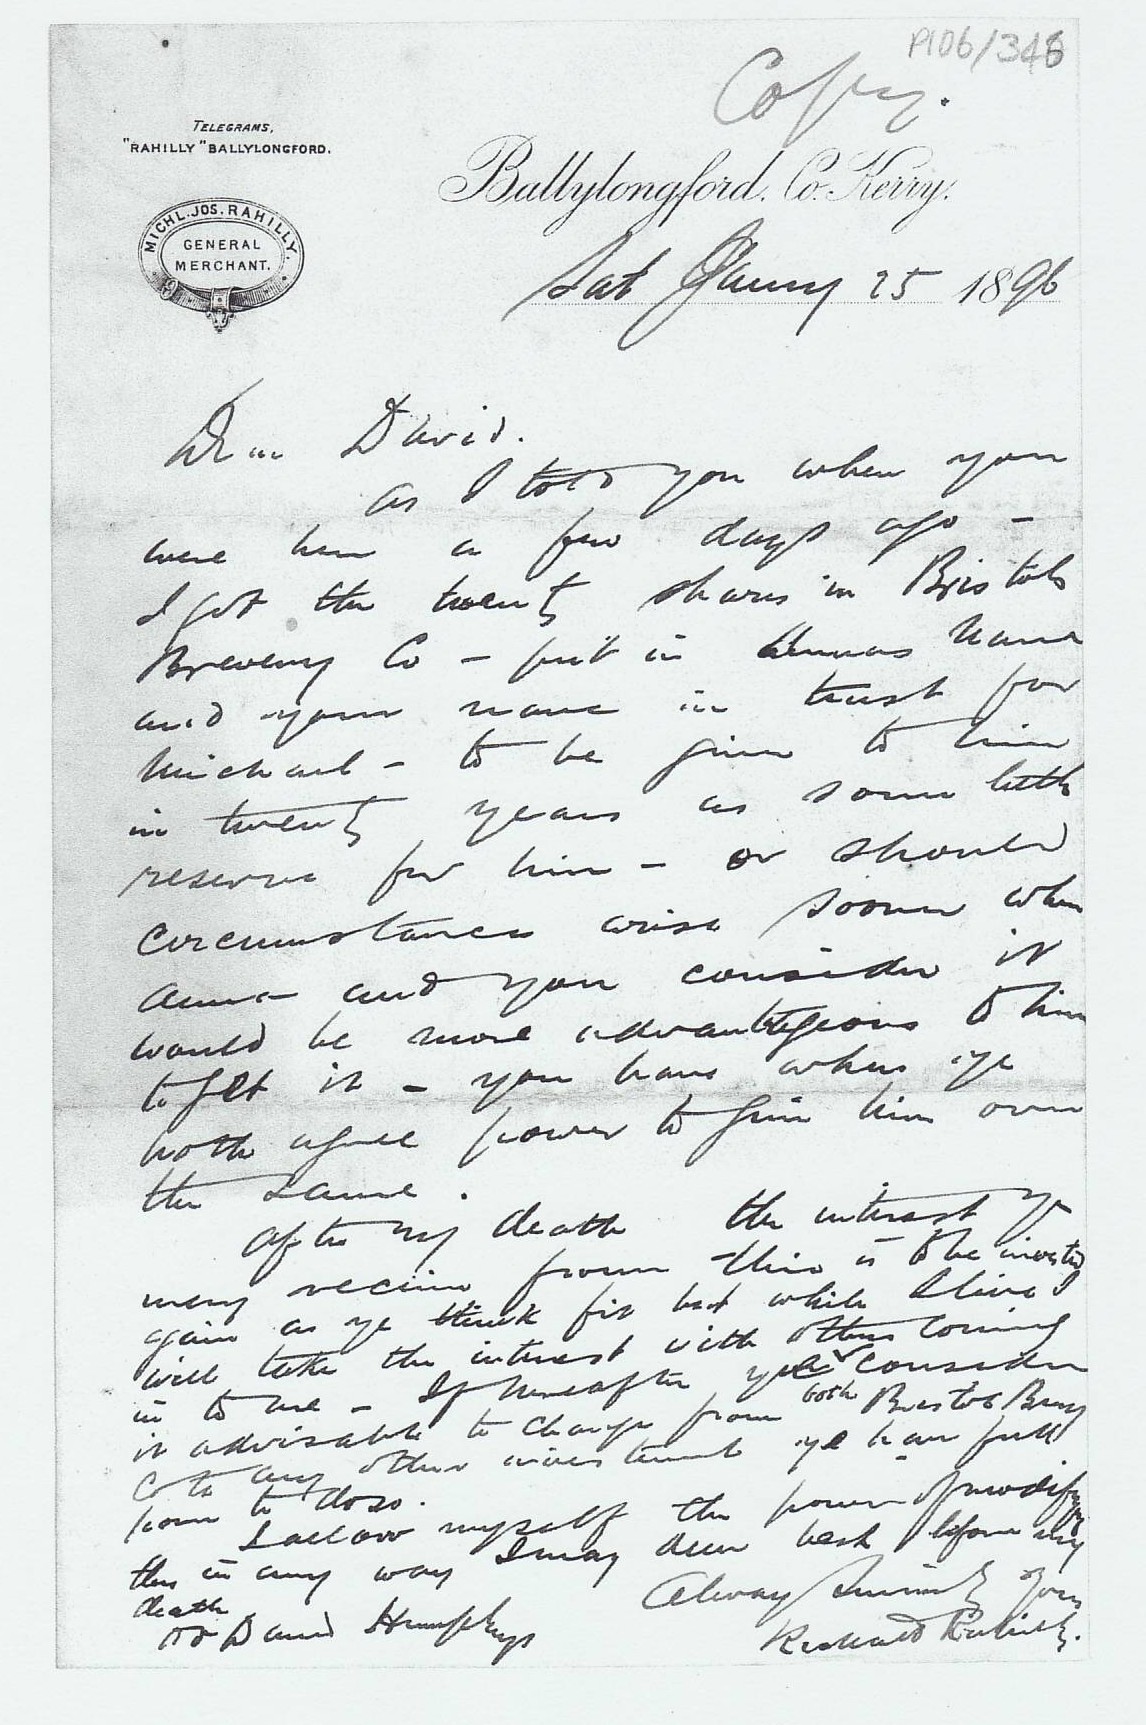 P106/346
Copy.
TELEGRAMS,
"RAHILLY" BALLYLONGFORD.
MICHL. JOS. RAHILLY.
GENERAL
MERCHANT.
Ballylongford, Co. Kerry.
Sat Jany 25 1896
Dear David.
as I told you when you
were here a few days ago -
I got the twenty shares in Bristol
Brewery Co - put in Annas name
and your name in trust for
Michael - to be given to him
in twenty years as some little
reserve for him - or should
circumstances arise sooner when
Anna and you consider it
would be more advantageous to him
to get it - you have when ye
both agree power to give him over
the same.
After my death the interest ye
may receive from this is to be invested
again as ye think fit but while I live I
will take the interest with others coming
in to me - If hereafter you both consider
it advisable to change from Bristol Brewy
Co to any other investment ye have full
power to do so.
I allow myself the power of modifying
this in any way I may deem best before my
death
Always Sincerely Yours
Richard Rahilly.
Mr David Humphreys